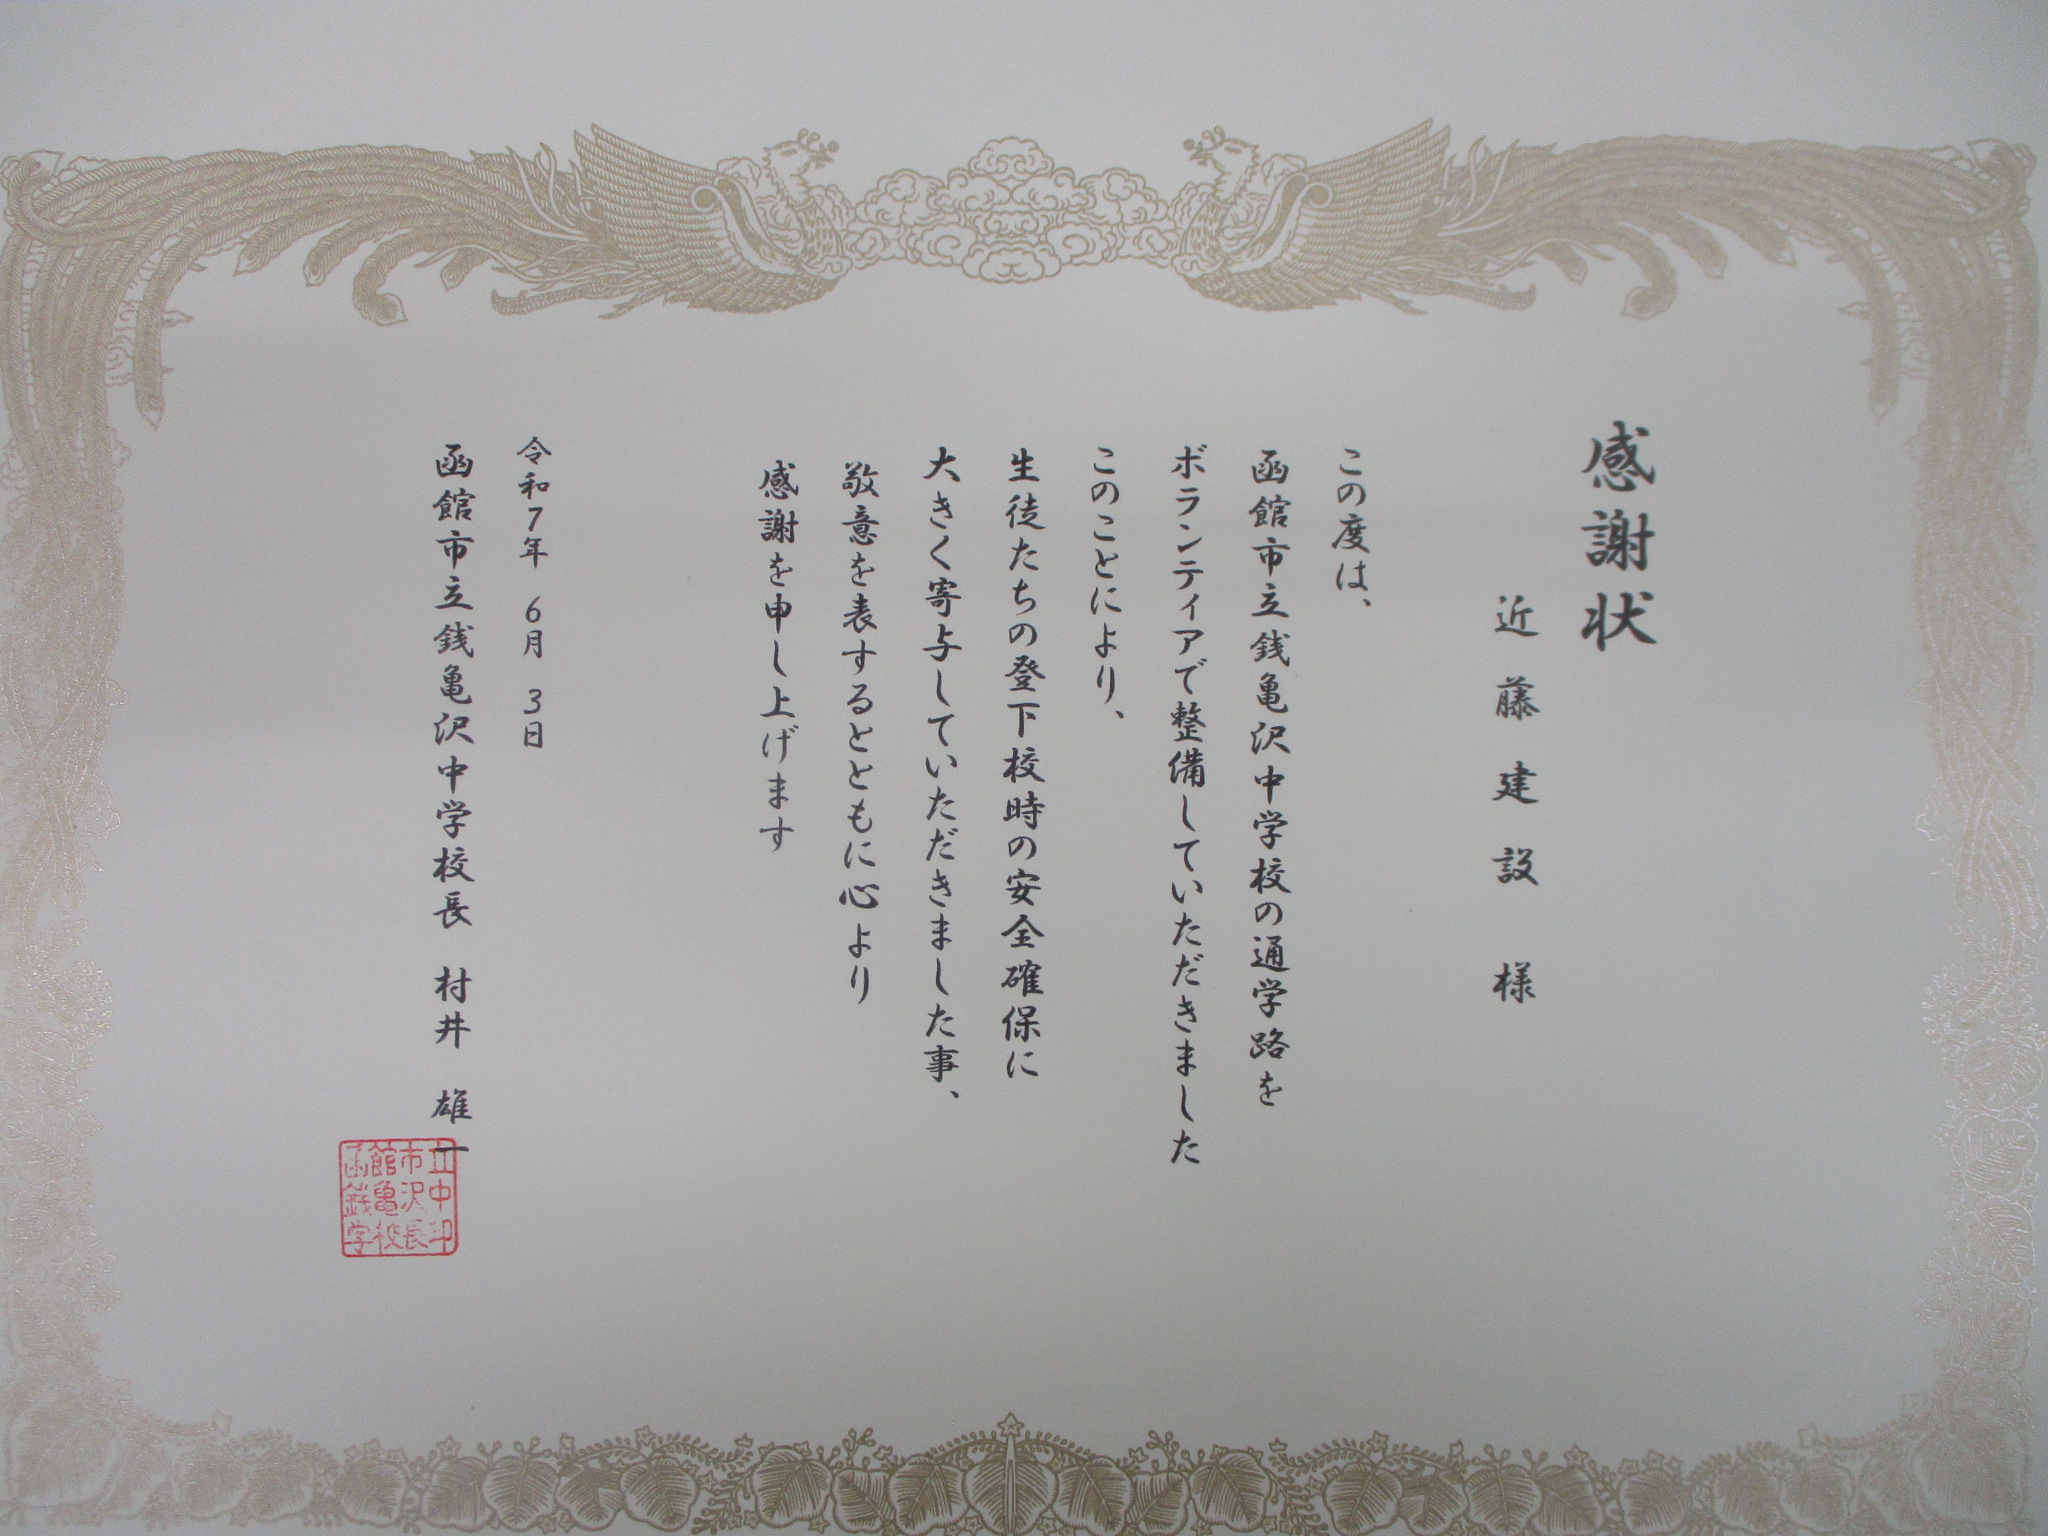 感謝状
近藤建設 様
この度は、
函館市立銭亀沢中学校の通学路を
ボランティアで整備していただきました
このことにより、
生徒たちの登下校時の安全確保に
大きく寄与していただきました事、
敬意を表するとともに心より
感謝を申し上げます
令和7年 6月 3日
函館市立銭亀沢中学校長 村井 雄一
函館市立
銭亀沢中
学校長印